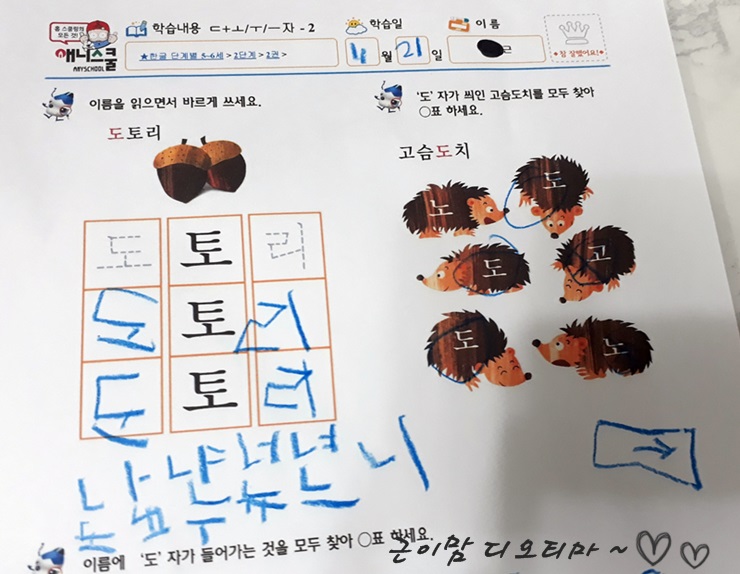 홈 스쿨링의 모든 것!
애니스쿨
ANYSCHOOL
학습내용 ㄷ+ㅗ/ㅜ/ㅡ 자 - 2
★한글 단계별 5~6세 > 2단계 > 2권 >
학습일
4월 21일
이름
근
참 잘했어요!
이름을 읽으면서 바르게 쓰세요.
도토리
도 토 리
도 토 리
도 토 리
'도' 자가 쓰인 고슴도치를 모두 찾아
○표 하세요.
고슴도치
노 도
도 고
도 노
이름에 '도' 자가 들어가는 것을 모두 찾아 ○표 하세요.
근이맘 디오티마 ~ ♡♡